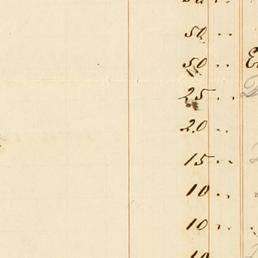 50 "
50 "
25 "
20 "
15 "
10 "
10 "
10